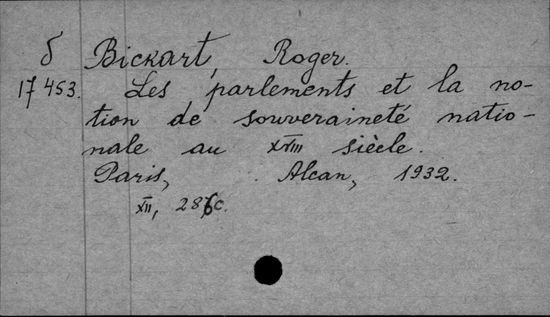 δ Bickart, Roger.
17 453. Les parlements et la no-
tion de souveraineté natio-
nale au XVIII siècle.
Paris, Alcan, 1932.
XII, 286c.